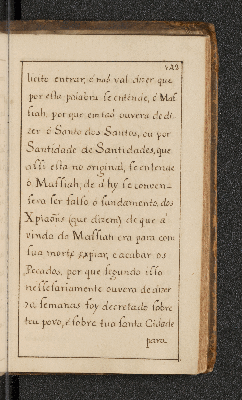 122
licito entrar, é naõ val dizer que
por esta palabra se entende, o Mas
siah, por que em taõ ouvera de di=
zer o Santo dos Santos, ou por
Santidade de Santidades, que
assi esta no original, se entende
o Massiah; de a hy se conven=
sera ser falso o fundamento, dos
Xp̃iaõns (que dizem) de que a
vinda do Massiah era para com
sua morte expiar, e acabar os
Pecados, por que segundo isso
nessesariamente ouvera de dizer
semanas foy decretado sobre
teu povo, é sobre tua santa Cidade
para